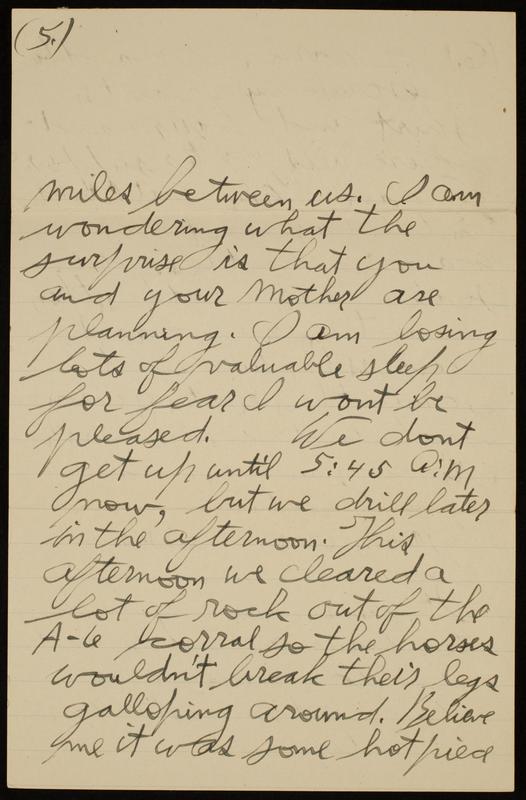 (5.)
miles between us. I am
wondering what the
surprise is that you
and your Mother are
planning. I am losing
lots of valuable sleep
for fear I wont be
pleased. We dont
get up until 5:45 A.M
now, but we drill later
in the afternoon. This
afternoon we cleared a
lot of rock out of the
A-6 korral so the horses
wouldn't break their legs
galloping around. Believe
me it was some hot piece